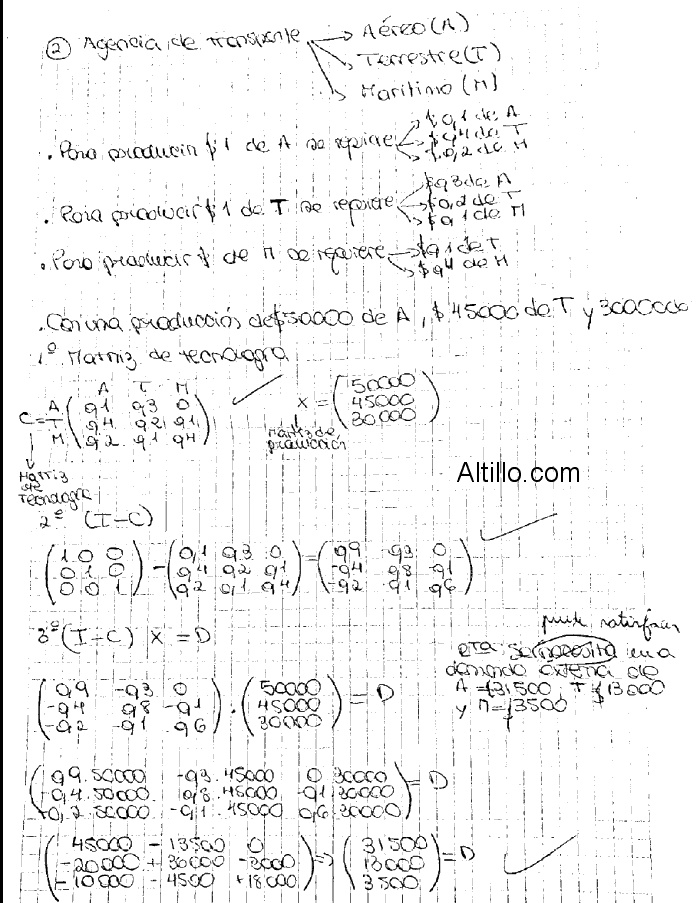 ② Agencia de transporte → Aéreo (A)
→ Terrestre (T)
→ Marítimo (M)
. Para producir $1 de A se requiere → $0,1 de A
→ $0,4 de T
→ $0,2 de M
. Para producir $1 de T se requiere → $0,3 de A
→ $0,2 de T
→ $0,1 de M
. Para producir $ de M se requiere → $0,1 de T
→ $0,4 de M
. Con una producción de $50000 de A, $45000 de T y 30000 de
1º Matriz de tecnología
A T M
C = A 0,1 0,3 0
T 0,4 0,2 0,1
M 0,2 0,1 0,4
Matriz de tecnología
X = 50000
45000
30000
Matriz de producción
Altillo.com
2º (I-C)
1 0 0 - 0,1 0,3 0 = 0,9 0,3 0
0 1 0 0,4 0,2 0,1 -0,4 0,8 -0,1
0 0 1 0,2 0,1 0,4 -0,2 0,1 0,6
3º (I-C) X = D
0,9 -0,3 0 . 50000 = D
-0,4 0,8 -0,1 45000
-0,2 -0,1 0,6 30000
puede satisfacer
Rta: Se necesita una
demanda externa de
A = $31500, T = $13000
y M = $3500
0,9.50000 -0,3.45000 0 30000 = D
-0,4.50000 0,8.45000 -0,1.30000
-0,2.50000 -0,1.45000 0,6.30000
45000 - 13500 0 ⇒ 31500 = D
-20000 + 36000 - 3000 13000
- 10000 - 4500 + 18000 3500